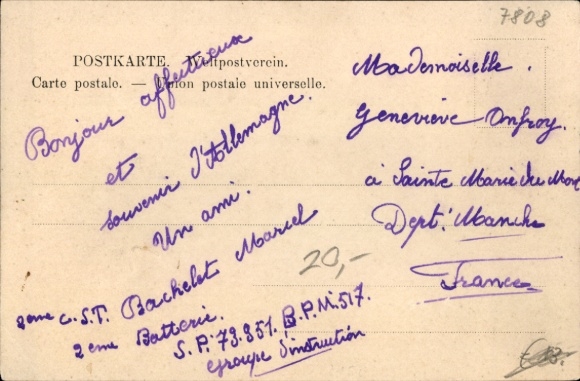 7808
POSTKARTE. Weltpostverein.
Carte postale. — Union postale universelle.
Bonjour affectueux
et
souvenir d'Allemagne.
Un ami.
2eme C.S.T. Bachelet Marcel
2eme Batterie.
S.P. 73.851. B.P.M. 517.
Groupe d'instruction
Mademoiselle.
Geneviève Onfroy.
à Sainte Marie du Mont
Dept: Manche
France
20,-